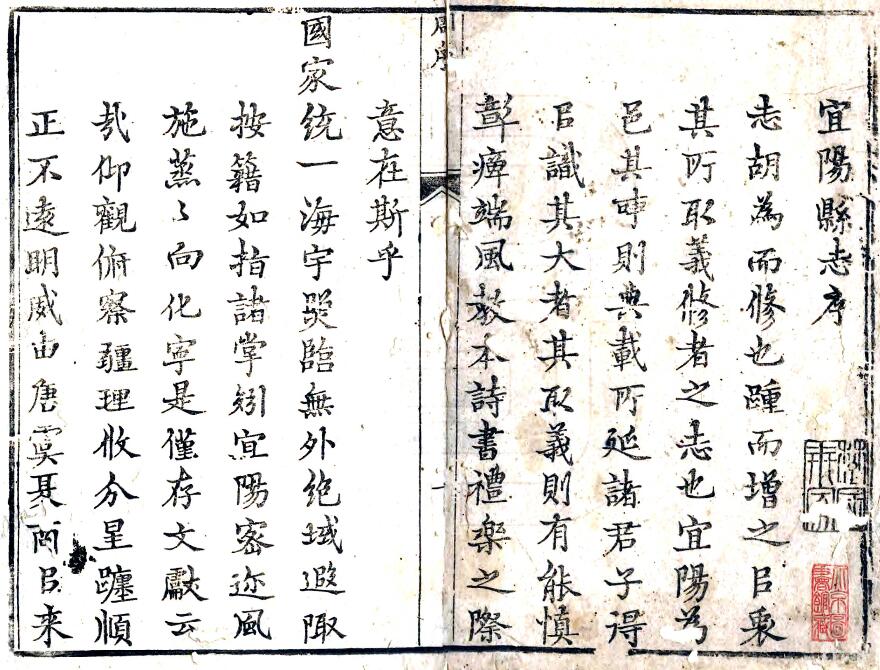 宜陽縣志序
志胡為而修也踵而增之㠯衷
其所取義修者之志也宜陽为
邑其事則典載所延諸君子得
㠯識其大者其取義則有能慎
彰癉端風教本詩書禮樂之際
意在斯乎
國家統一海宇照臨無外絶域遐陬
按籍如指諸掌矧宜陽密迩風
施蒸〻向化寧是僅存文獻云
哉仰觀俯察疆理收分星躔順
正不遠明威由唐虞夏商㠯来